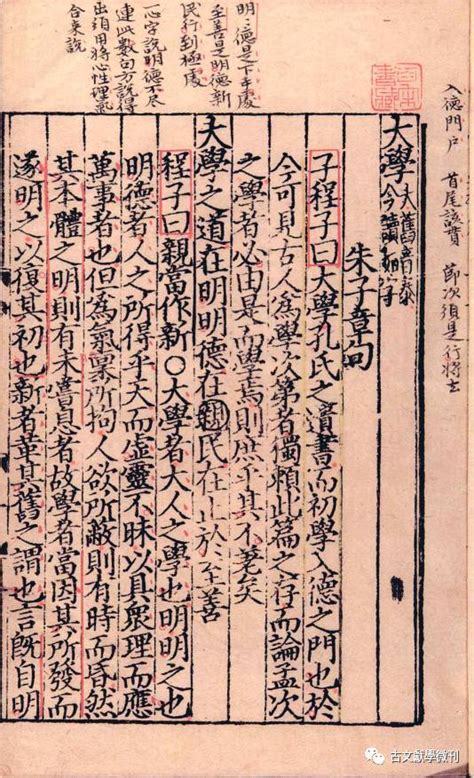 入德門户 首尾該貫 節次須是行將去
明〻德是下手處
至善是明德新
民行到極處
一心字說明德不尽
連此數句方說得
出須用將心性理氣
合来說
大學 大舊音泰
今讀如字
朱子章句
子程子曰大學孔氏之遺書而初學入德之門也於
今可見古人為學次第者獨賴此篇之存而論孟次
之學者必由是而學焉則庶乎其不差矣
大學之道在明明德在親民在止於至善
程子曰親當作新○大學者大人之學也明明之也
明德者人之所得乎天而虛靈不昧以具衆理而應
萬事者也但為氣禀所拘人欲所蔽則有時而昏然
其本體之明則有未嘗息者故學者當因其所發而
遂明之以復其初也新者革其舊之謂也言旣自明
古文献學微刊